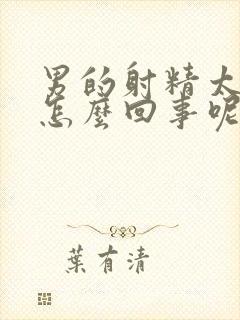 男的射精太
怎麼回事呢
葉有清